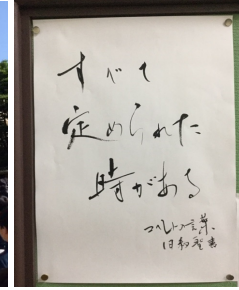 すべて
定められた
時がある
コヘレトの言葉
旧約聖書